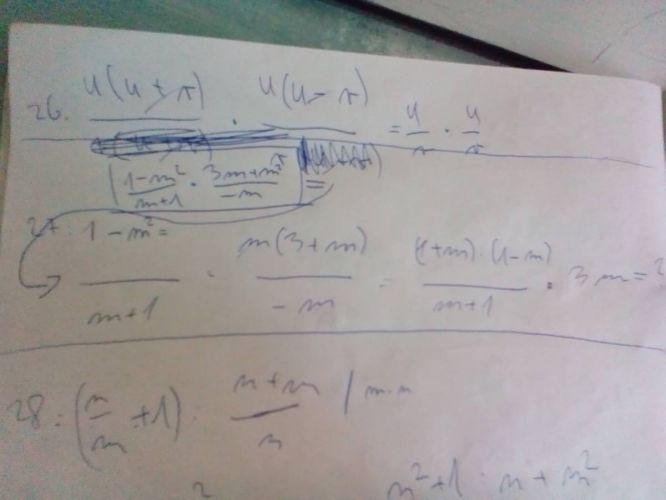 26. u(u+π) / · u(u-π) / = u/π · u/π
1-m²/m+1 · 3m+m²/-m =
27: 1-m²= / m+1 · m(3+m)/-m = (1+m)·(1-m)/m+1 · 3m=?
28: (n/m +1) : n+m/n / m·n
2 n²+1 · n+m²